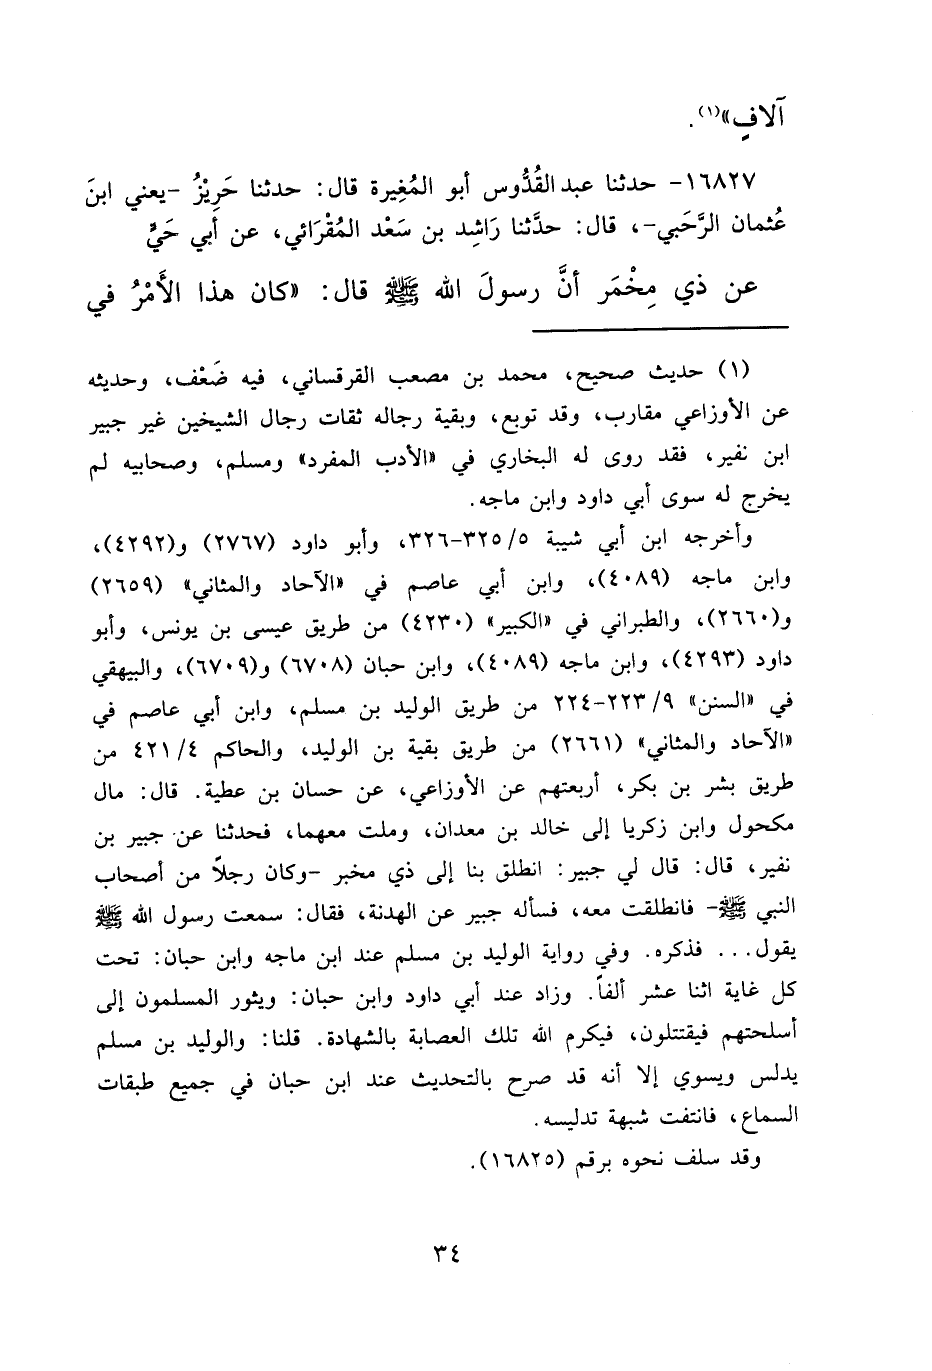 آلافٍ»(١).
١٦٨٢٧- حدثنا عبد القُدُّوس أبو المُغِيرة قال: حدثنا حَرِيْزُ -يعني ابنَ
عُثمان الرَّحَبي-، قال: حدَّثنا رَاشِد بن سَعْد المُقْرَائي، عن أبي حَيٍّ
عن ذي مِخْمَر أنَّ رسولَ الله ﷺ قال: «كان هذا الأَمْرُ في
(١) حديث صحيح، محمد بن مصعب القرقساني، فيه ضَعْف، وحديثه
عن الأوزاعي مقارب، وقد توبع، وبقية رجاله ثقات رجال الشيخين غير جبير
ابن نفير، فقد روى له البخاري في «الأدب المفرد» ومسلم، وصحابيه لم
يخرج له سوى أبي داود وابن ماجه.
وأخرجه ابن أبي شيبة ٣٢٥/٥-٣٢٦، وأبو داود (٢٧٦٧) و(٤٢٩٢)،
وابن ماجه (٤٠٨٩)، وابن أبي عاصم في «الآحاد والمثاني» (٢٦٥٩)
و(٢٦٦٠)، والطبراني في «الكبير» (٤٢٣٠) من طريق عيسى بن يونس، وأبو
داود (٤٢٩٣)، وابن ماجه (٤٠٨٩)، وابن حبان (٦٧٠٨) و(٦٧٠٩)، والبيهقي
في «السنن» ٩/ ٢٢٣-٢٢٤ من طريق الوليد بن مسلم، وابن أبي عاصم في
«الآحاد والمثاني» (٢٦٦١) من طريق بقية بن الوليد، والحاكم ٤٢١/٤ من
طريق بشر بن بكر، أربعتهم عن الأوزاعي، عن حسان بن عطية. قال: مال
مكحول وابن زكريا إلى خالد بن معدان، وملت معهما، فحدثنا عن جبير بن
نفير، قال: قال لي جبير: انطلق بنا إلى ذي مخبر -وكان رجلاً من أصحاب
النبي ﷺ- فانطلقت معه، فسأله جبير عن الهدنة، فقال: سمعت رسول الله ﷺ
يقول... فذكره. وفي رواية الوليد بن مسلم عند ابن ماجه وابن حبان: تحت
كل غاية اثنا عشر ألفاً. وزاد عند أبي داود وابن حبان: ويثور المسلمون إلى
أسلحتهم فيقتتلون، فيكرم الله تلك العصابة بالشهادة. قلنا: والوليد بن مسلم
يدلس ويسوي إلا أنه قد صرح بالتحديث عند ابن حبان في جميع طبقات
السماع، فانتفت شبهة تدليسه.
وقد سلف نحوه برقم (١٦٨٢٥).
٣٤